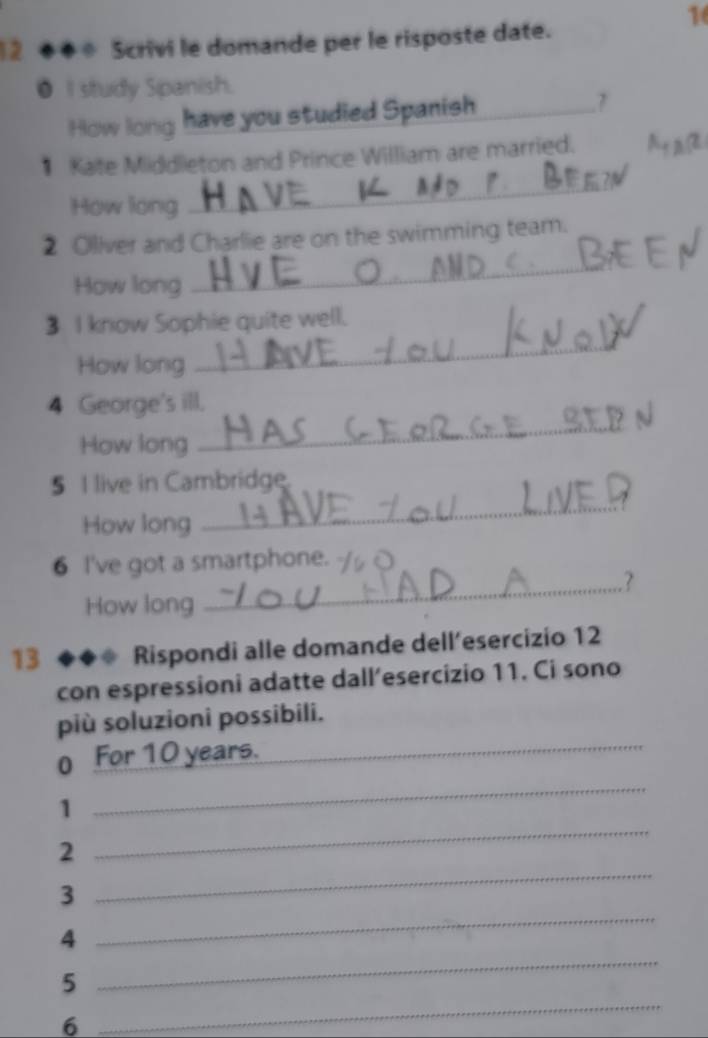 16
12 Scrivi le domande per le risposte date.
0 I study Spanish.
How long have you studied Spanish ?
1 Kate Middleton and Prince William are married.
How long HAVE K AND P. BEEN
2 Oliver and Charlie are on the swimming team.
How long HVE O. AND C. BEEN
3 I know Sophie quite well.
How long HAVE YOU KNOW
4 George's ill.
How long HAS GEORGE BEEN
5 I live in Cambridge.
How long HAVE YOU LIVED
6 I've got a smartphone.
How long YOU HAD A ?
13 Rispondi alle domande dell'esercizio 12
con espressioni adatte dall'esercizio 11. Ci sono
più soluzioni possibili.
0 For 10 years.
1
2
3
4
5
6